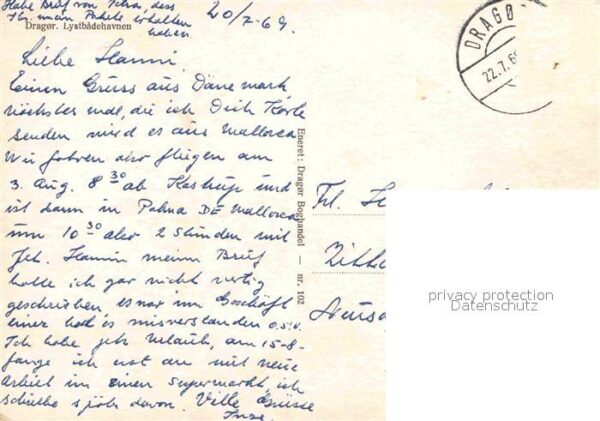 Habe Brief von Petra, dass
Ihr meine Pakete erhalten
haben.
20/7-69.
Dragør. Lystbådehavnen
Liebe Hanni.
Einen Gruss aus Dänemark
nächstes mal, die ich Dich Karte
senden wird es aus Mallorca
Wir fahren also fliegen am
3. Aug. 8 30 ab Kastrup und
ist dann in Palma DE Mallorca
um 10 30 also 2 Stunden mit
Jet. Hanni meinen Brief
hatte ich gar nicht fertig
geschrieben, es war im Geschäft
einer hat es misverstanden o.s.v.
Ich habe jetz Urlaub, am 15-8-
fange ich erst an mit neue
Arbeit im einen supermarkt, ich
schreibe später davon. Viele Grüsse
Inze.
Eneret: Dragør Boghandel — nr. 102
DRAGØ
22.7.69
Frl. H
Zitt
privacy protection
Datenschutz